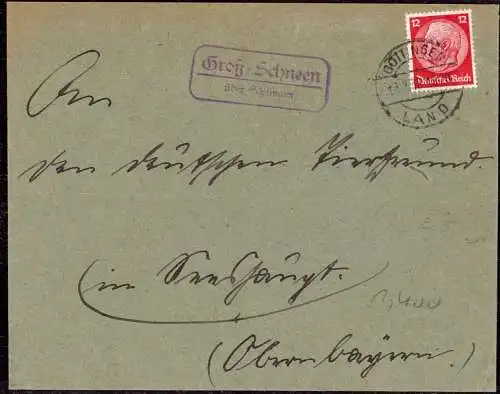 12 12
Deutsches Reich
GÖTTINGEN
LAND
Groß-Schneen
über Göttingen
An
den deutschen Tierfreund.
in Seeshaupt.
(Obernbayern.)